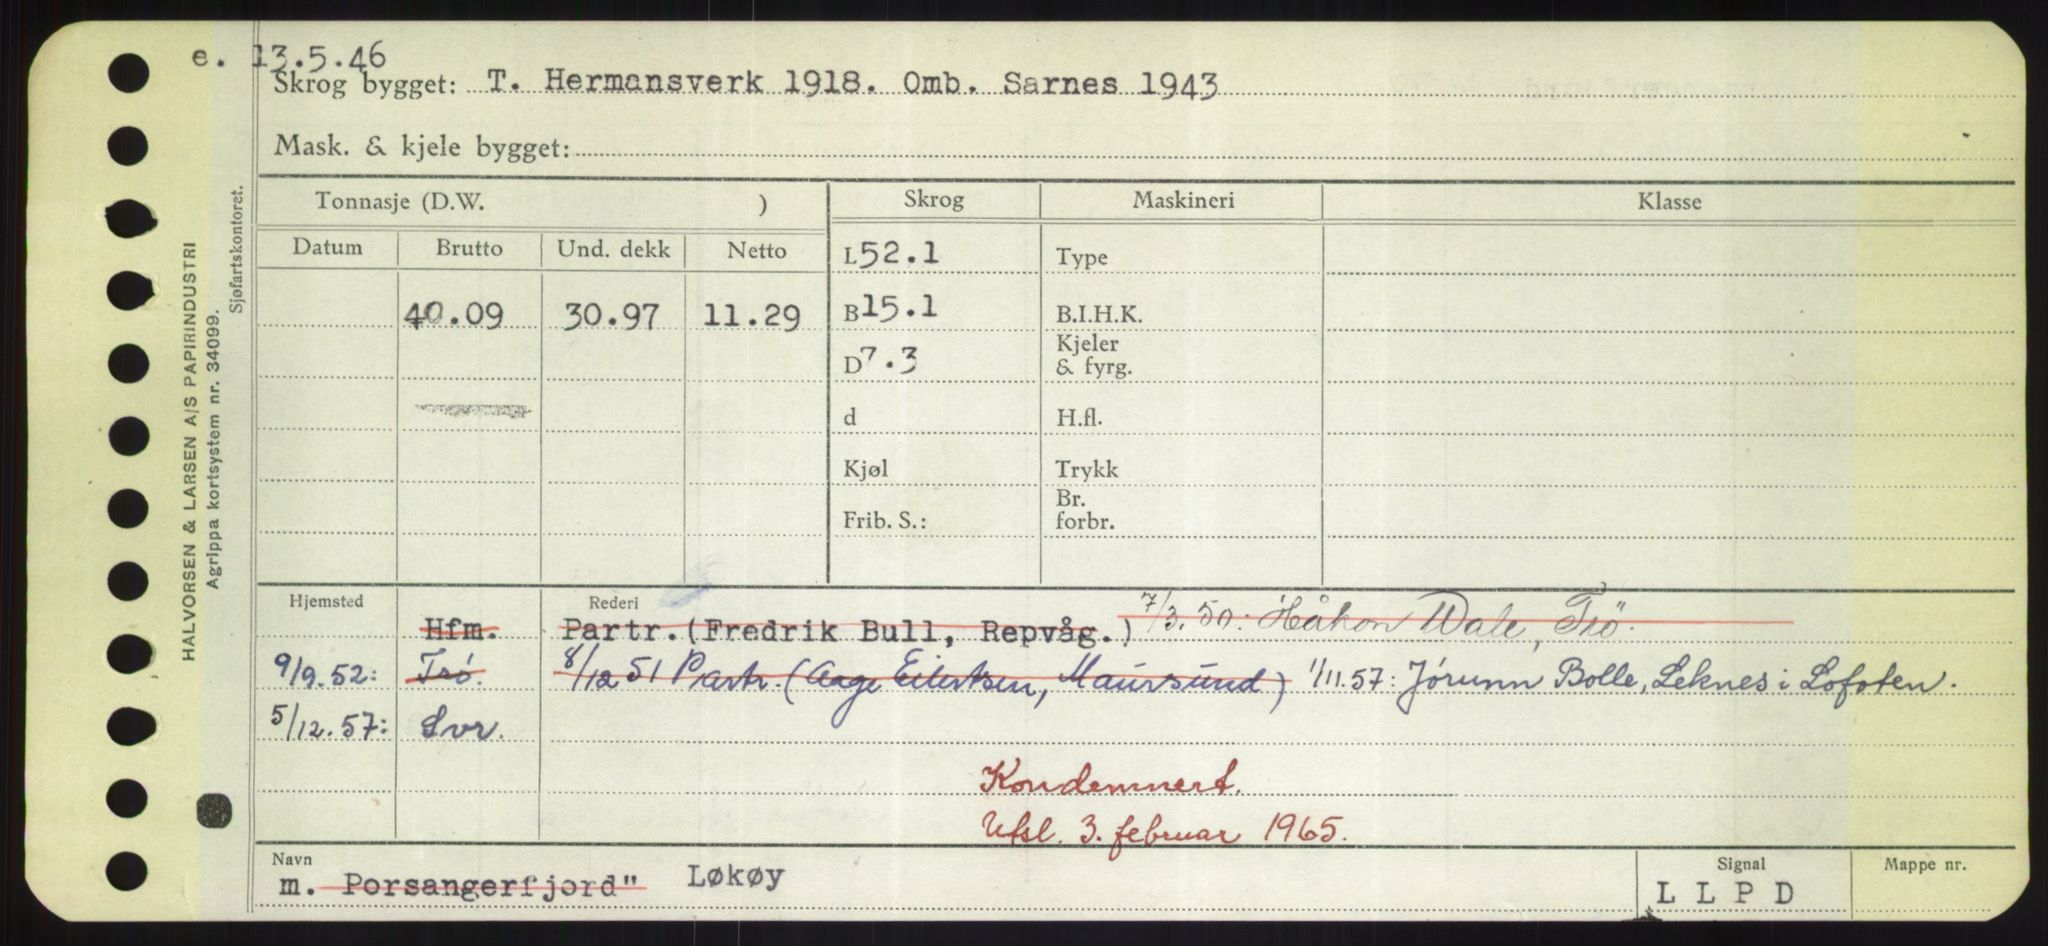 e. 13.5.46
Skrog bygget: T. Hermansverk 1918. Omb. Sarnes 1943
Mask. & kjele bygget:
Tonnasje (D.W. ) Skrog Maskineri Klasse
Datum Brutto Und. dekk Netto L 52.1 Type
40.09 30.97 11.29 B 15.1 B.I.H.K.
D 7.3 Kjeler & fyrg.
d H.fl.
Kjøl Trykk
Frib. S.: Br. forbr.
Hjemsted Rederi
Hfm. Partr. (Fredrik Bull, Repvåg.) 7/3.50. Håkon Wale, Trö.
9/9.52: Trö. 8/12 51 Partr. (Aage Eilertsen, Maursund) 1/11.57: Jørunn Bolle, Leknes i Lofoten.
5/12.57: Svr.
Kondemnert.
Utsl. 3. februar 1965.
Navn Signal Mappe nr.
m. Porsangerfjord" Løkøy L L P D
HALVORSEN & LARSEN A/S PAPIRINDUSTRI
Agrippa kortsystem nr. 34099.
Sjøfartskontoret.